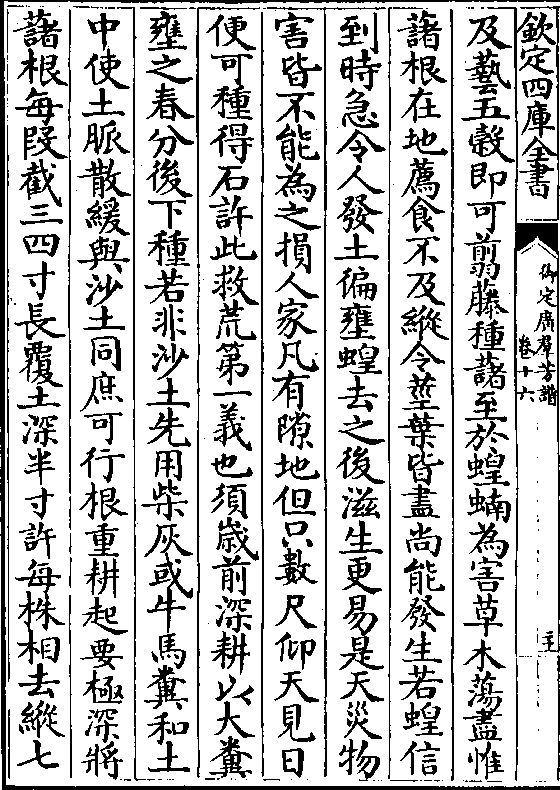 欽定四庫全書
御定廣羣芳譜
卷十六
及藝五穀即可翦藤種藷至於蝗蝻為害草木蕩盡惟
藷根在地薦食不及縱令莖葉皆盡尚能發生若蝗信
到時急令人發土徧壅蝗去之後滋生更易是天災物
害皆不能為之損人家凡有隙地但只數尺仰天見日
便可種得石許此救荒第一義也須歲前深耕以大糞
壅之春分後下種若非沙土先用柴灰或牛馬糞和土
中使土脈散緩與沙土同庶可行根重耕起要極深將
藷根每段截三四寸長覆土深半寸許每株相去縱七